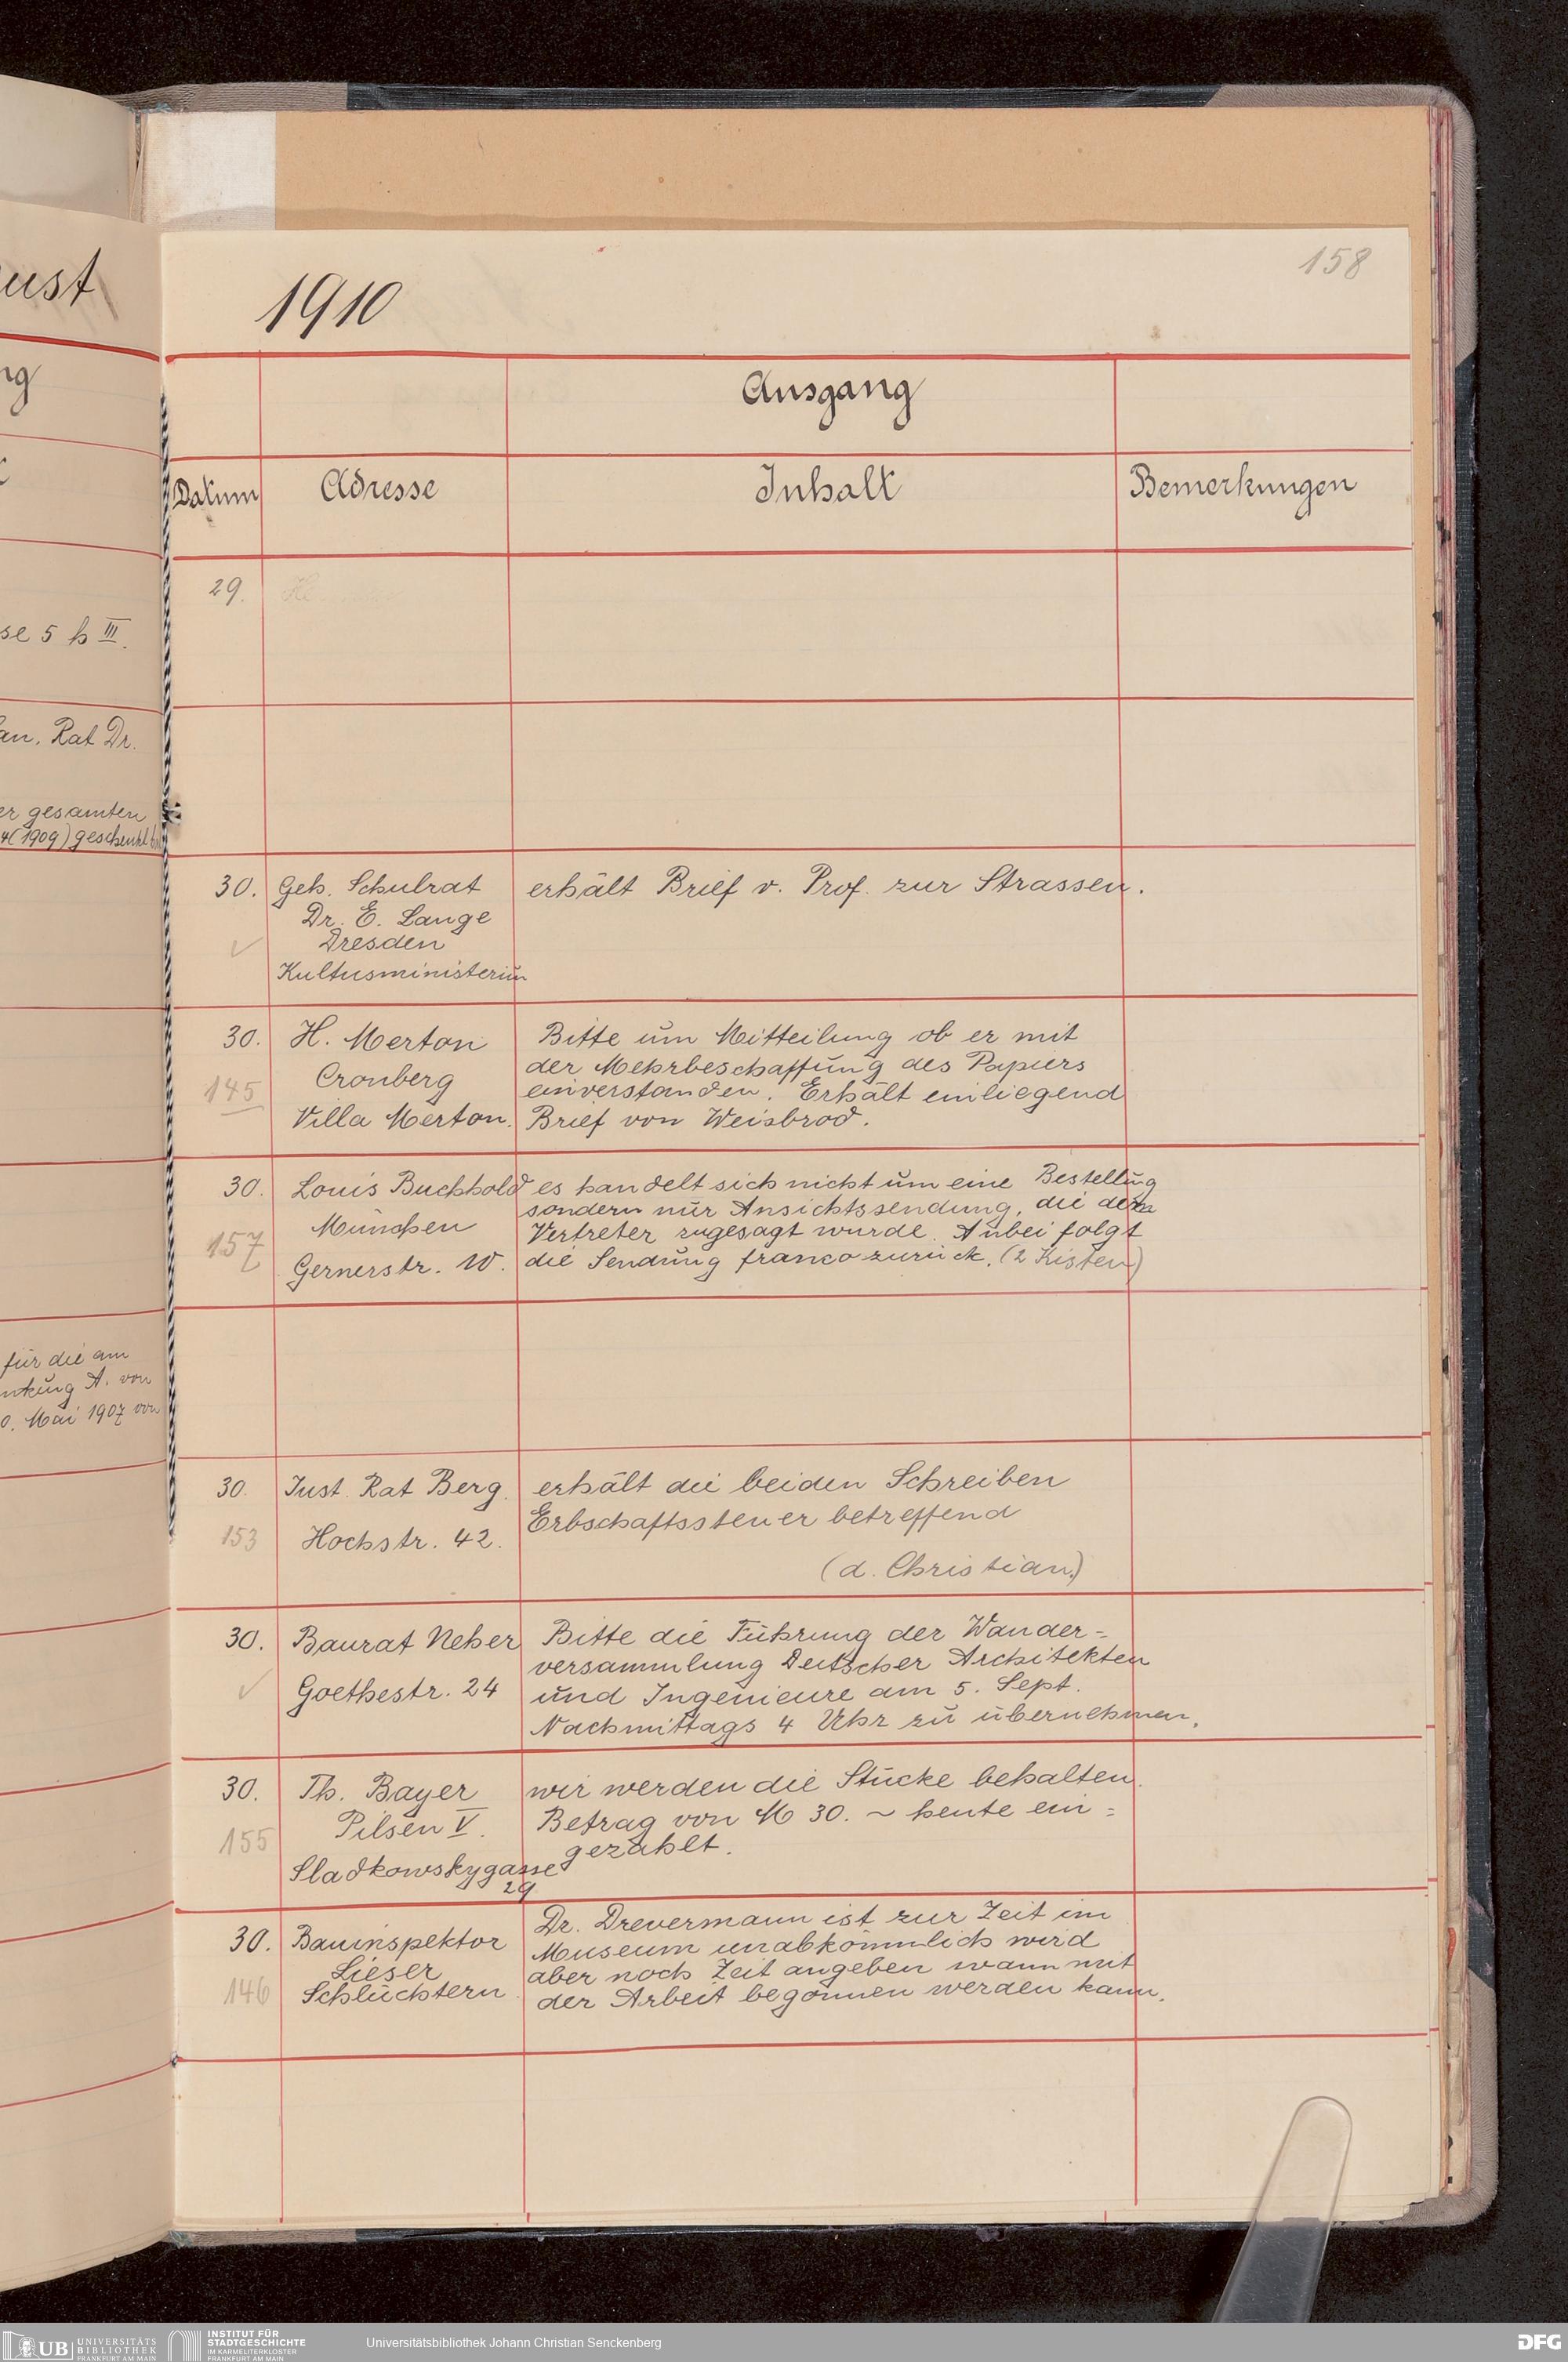 ust
ng
se 5 b III.
an. Rat Dr.
er gesamten
4(1909) geschenkt
für die am
nkung A. von
0. Mai 1907 von
158
1910
Ausgang
Datum Adresse Inhalt Bemerkungen
29.
30. Geh. Schulrat erhält Brief v. Prof. zur Strassen.
Dr. E. Lange
✓ Dresden
Kultusministerium
30. H. Merton Bitte um Mitteilung ob er mit
Cronberg der Mehrbeschaffung des Papiers
145 einverstanden. Erhält einliegend
Villa Merton. Brief von Weisbrod.
30. Louis Buchhold es handelt sich nicht um eine Bestellung
sondern nur Ansichtssendung, die dem
München Vertreter zugesagt wurde. Anbei folgt
157 Gernerstr. 10. die Sendung franco zurück. (2 Kisten)
30. Just. Rat Berg. erhält die beiden Schreiben
153 Hochstr. 42. Erbschaftssteuer betreffend
(d. Christian)
30. Baurat Neher Bitte die Führung der Wander-
versammlung Deutscher Architekten
✓ Goethestr. 24 und Ingenieure am 5. Sept.
Nachmittags 4 Uhr zu übernehmen.
30. Th. Bayer wir werden die Stücke behalten.
Pilsen V. Betrag von M 30. ~ heute ein-
155 gezahlt.
Sladkowskygasse
29
30. Bauinspektor Dr. Drevermann ist zur Zeit im
Lieser Museum unabkömmlich wird
146 Schlüchtern aber noch Zeit angeben wann mit
der Arbeit begonnen werden kann.
UB UNIVERSITÄTS
BIBLIOTHEK
FRANKFURT AM MAIN
INSTITUT FÜR
STADTGESCHICHTE
IM KARMELITERKLOSTER
FRANKFURT AM MAIN
Universitätsbibliothek Johann Christian Senckenberg
DFG